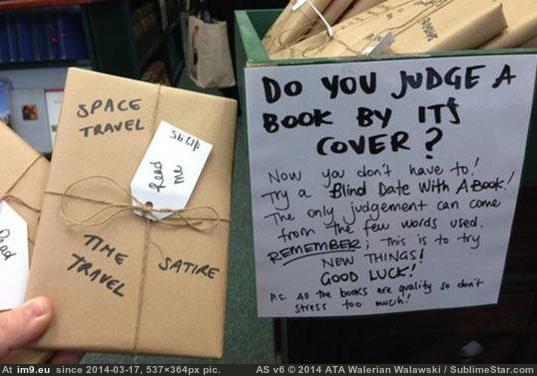 SPACE
TRAVEL
Read
me
TIME
TRAVEL
SATIRE
Read
DO YOU JUDGE A
BOOK BY ITS
COVER?
Now you don't have to!
Try a Blind Date With A Book!
The only judgement can come
from the few words used.
REMEMBER; This is to try
NEW THINGS!
GOOD LUCK!
P.S. All the books are quality so don't
stress too much!
At im9.eu since 2014-03-17, 537×364px pic.
AS v6 © 2014 ATA Walerian Walawski / SublimeStar.com